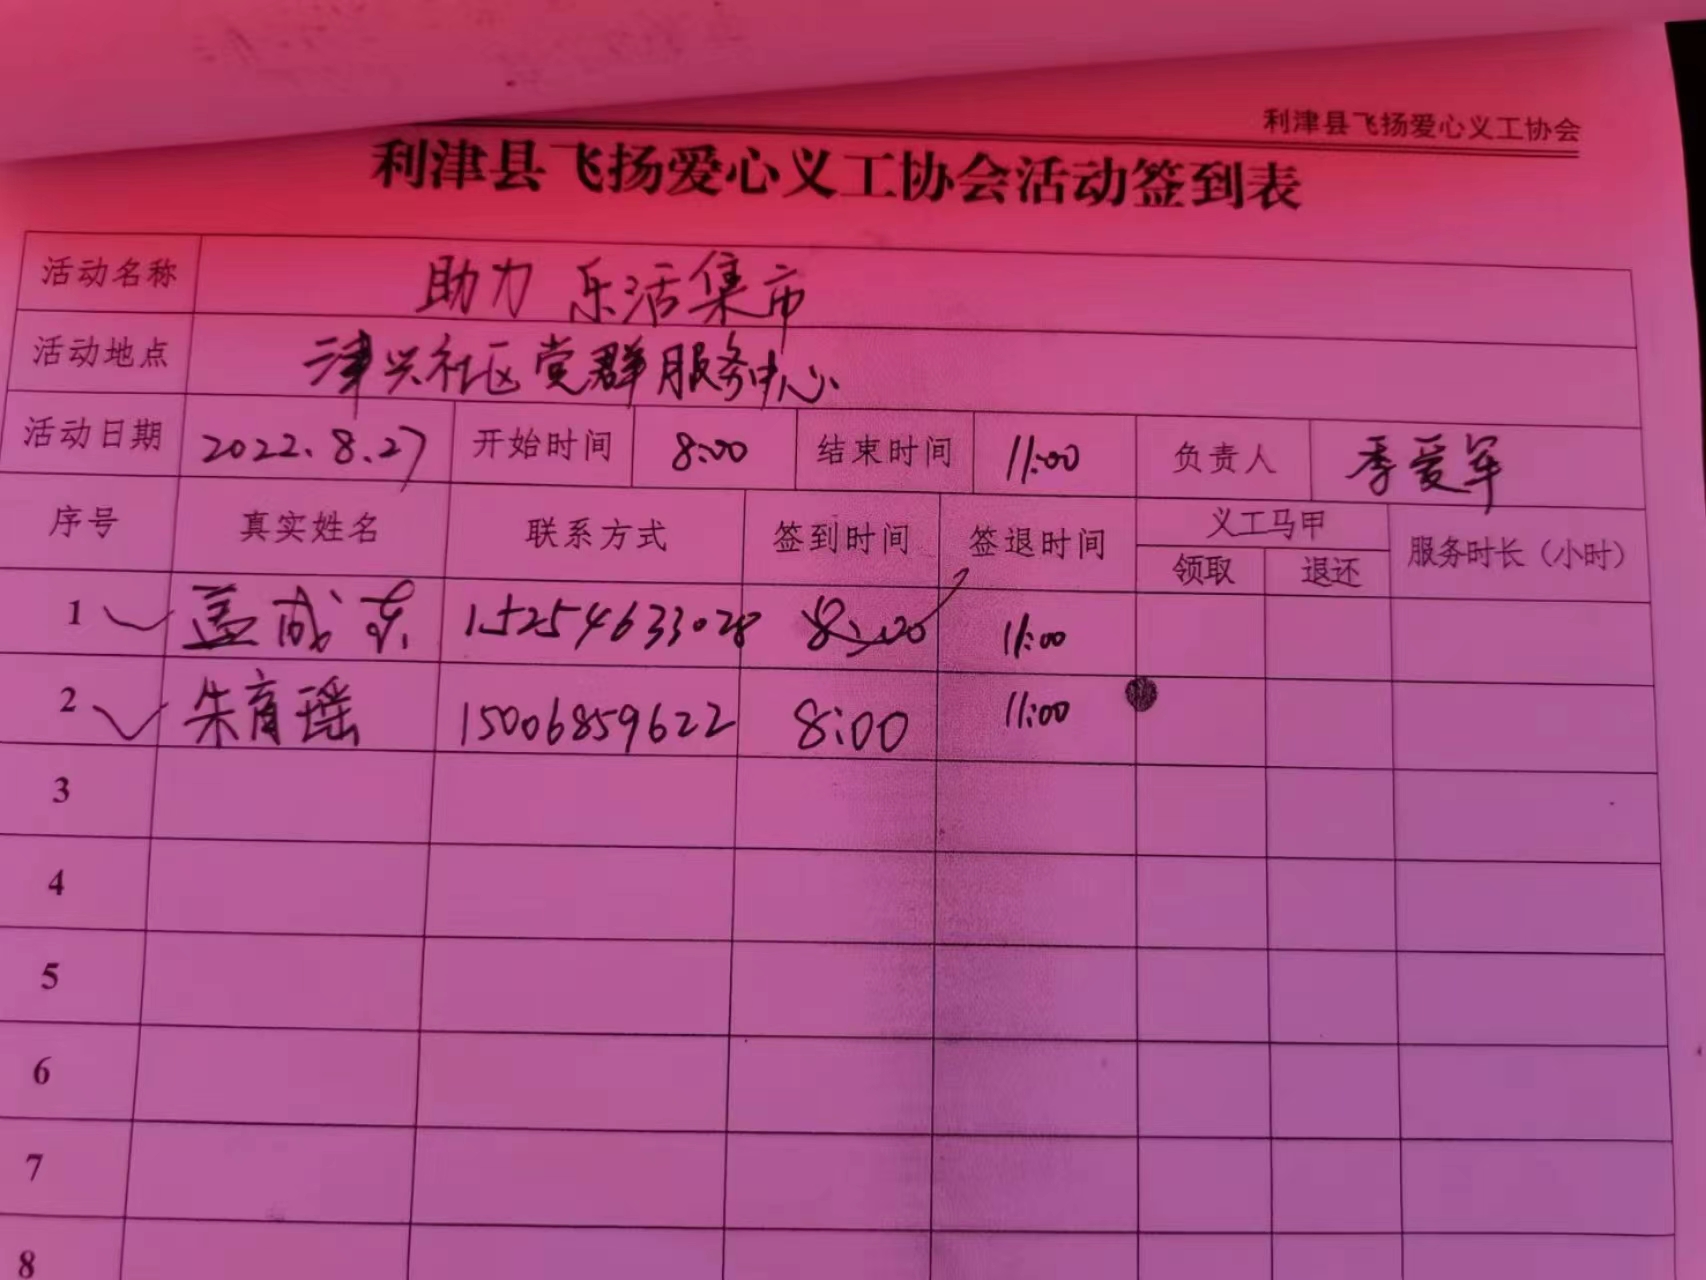 利津县飞扬爱心义工协会
利津县飞扬爱心义工协会活动签到表
活动名称 助力 乐活集市
活动地点 津兴社区党群服务中心
活动日期 2022.8.27 开始时间 8:00 结束时间 11:00 负责人 季爱军
序号 真实姓名 联系方式 签到时间 签退时间 义工马甲 服务时长（小时）
领取 退还
1 盖成东 15254633028 8:00 11:00
2 朱育瑶 15006859622 8:00 11:00
3
4
5
6
7
8